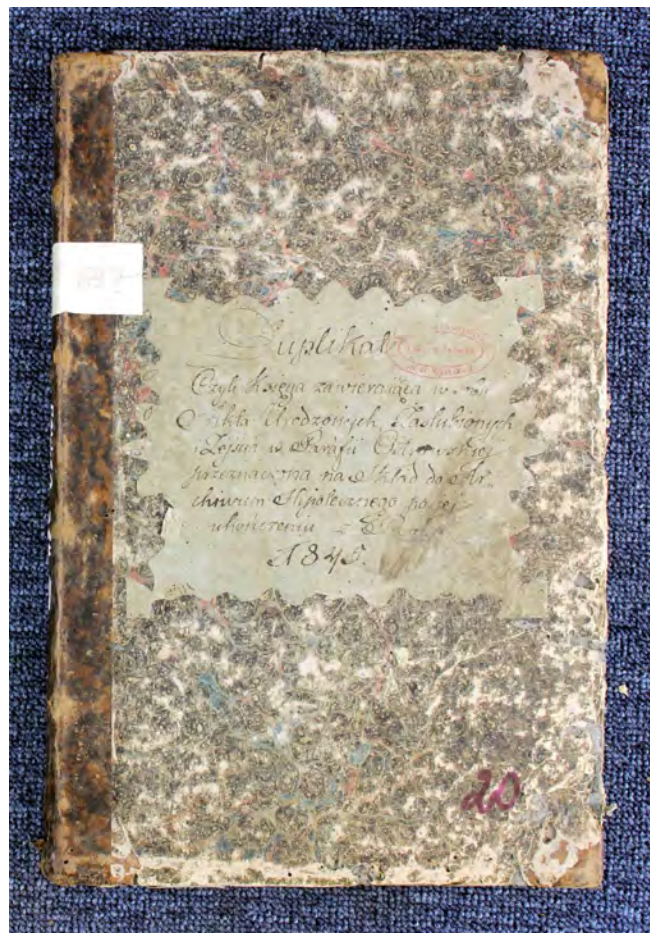 Duplikat
Czyli Księga zawierająca w sobie
Akta Urodzonych, Zaślubionych
i Zejścia w Parafii
przeznaczona na Skład do Ar-
chiwum Hipotecznego po jej
ukończeniu z
1845.
20